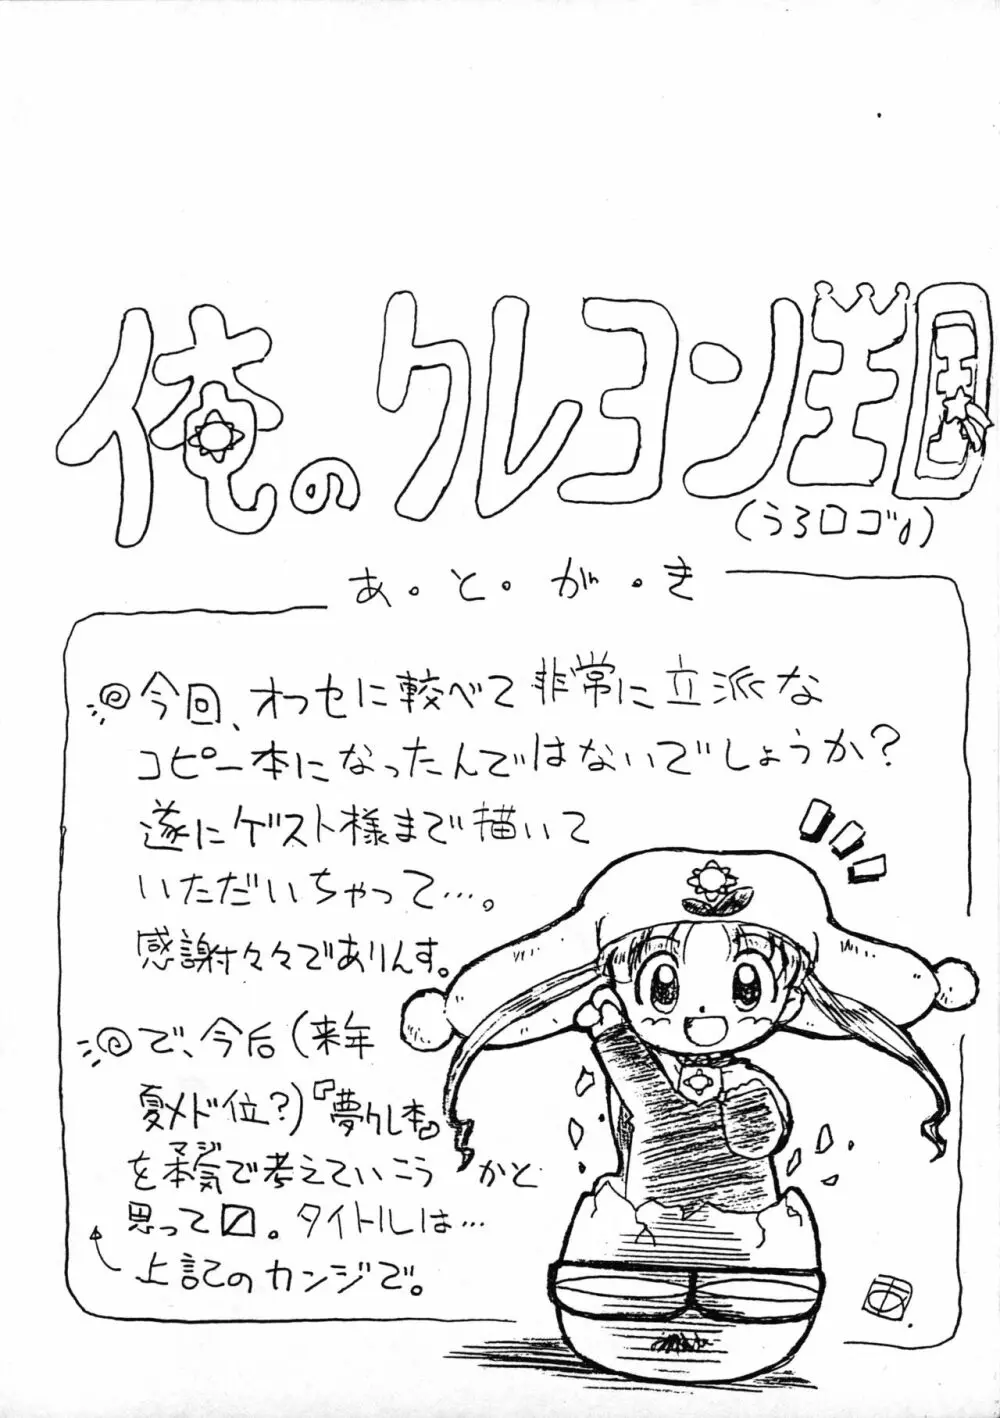 俺のクレヨン王国
(うろロゴ♪)
あ・と・が・き
今回、オフセに較べて非常に立派な
コピー本になったんではないでしょうか?
遂にゲスト様まで描いて
いただいちゃって…。
感謝々々でありんす。
で、今后(来年
夏メド位?)『夢クレ本』
を本気で考えていこうかと
マジ
思って〼。タイトルは…
上記のカンジで。